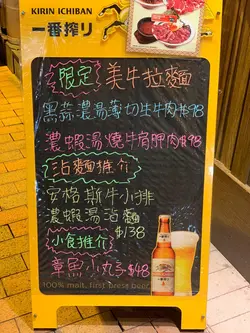 KIRIN ICHIBAN
一番搾り
限定 美牛拉麵
黑蒜濃湯薄切生牛肉$98
濃蝦湯燒牛肩胛肉$98
沾麵推介
安格斯牛小排
濃蝦湯沾麵
$138
小食推介
章魚小丸子$48
100% malt, first press beer